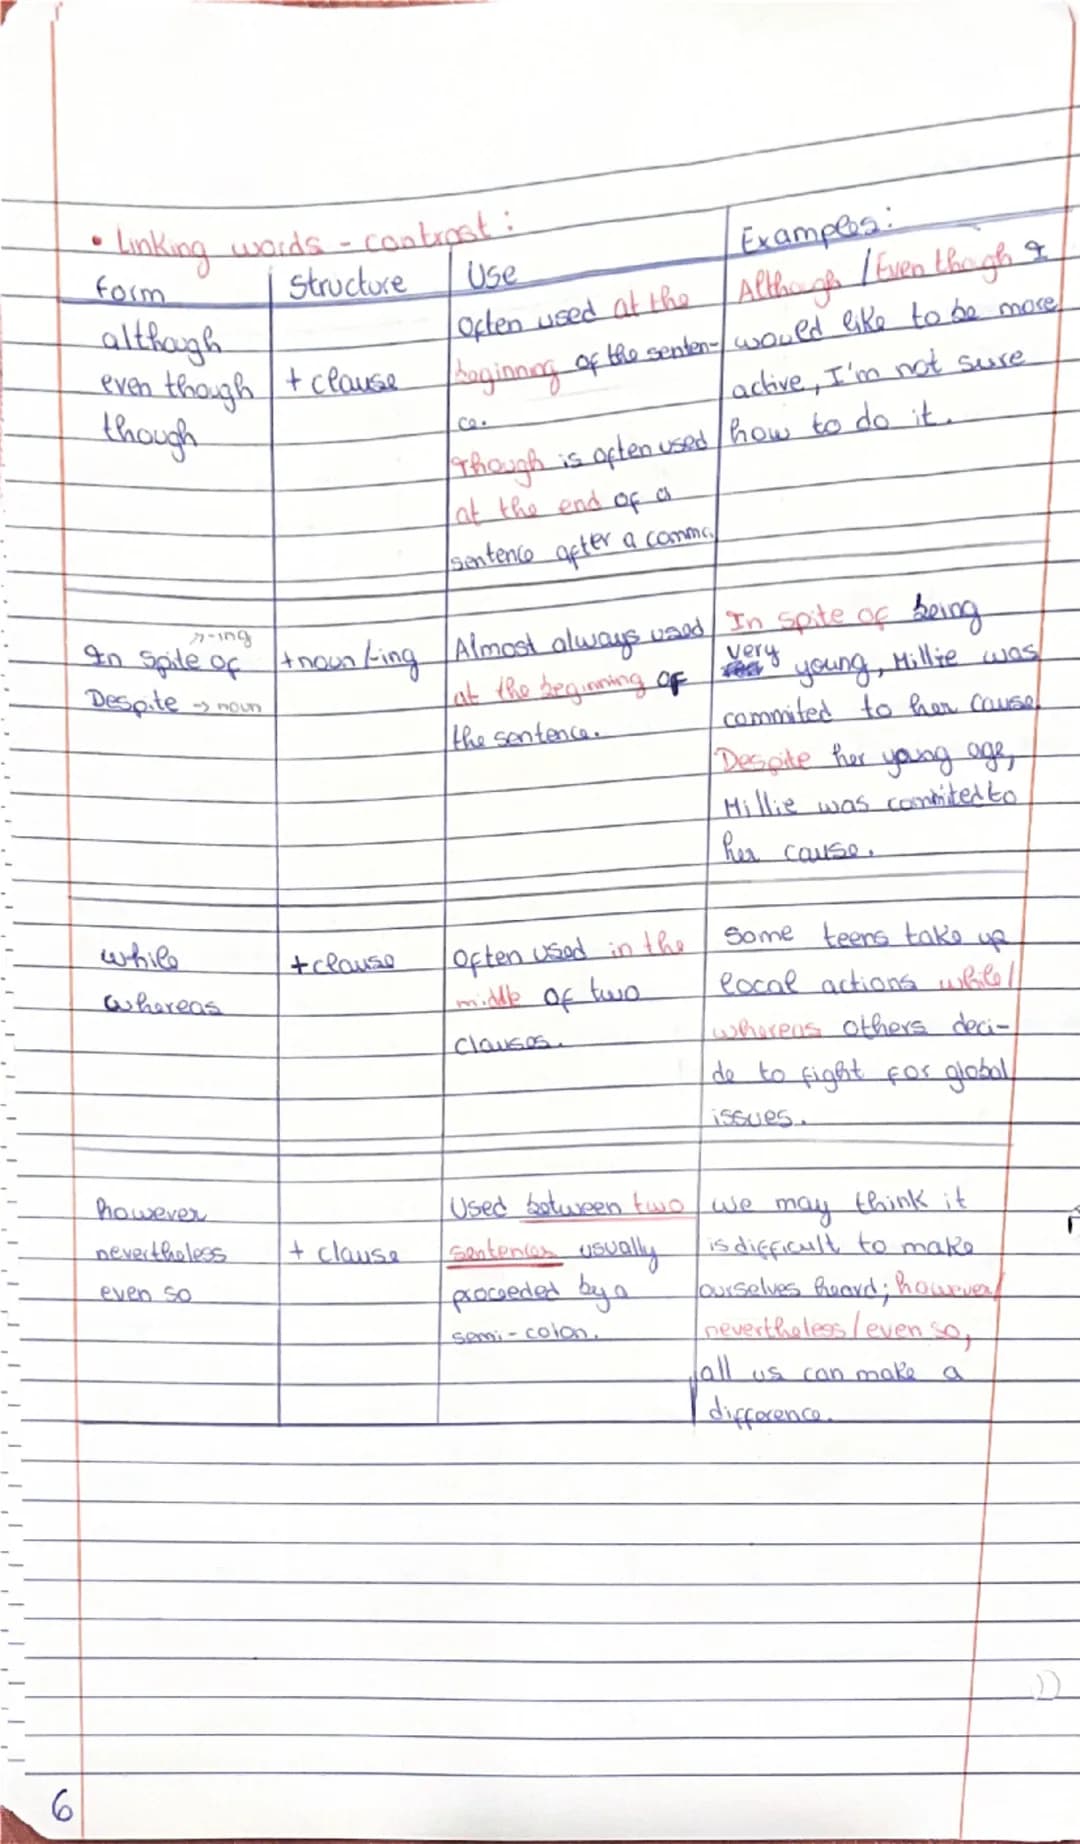 • Linking words - contrast :
Form
Structure
Use
Examples:
although
even though
though
+ clause
Often used at the
beginning of the senten-
ce.
Though is often used
at the end of a
sentence after a comma.
Although / Even though I
would like to be more
active, I'm not sure
how to do it.
In spite of → -ing
Despite → noun
+ noun /-ing
Almost always used
at the beginning of
the sentence.
In spite of being
very young, Millie was
commited to her cause.
Despite her young age,
Millie was commited to
her cause.
while
whereas
+ clause
Often used in the
middle of two
clauses.
Some teens take up
local actions while/
whereas others deci-
de to fight for global
issues.
however
nevertheless
even so
+ clause
Used between two
sentences usually
proceeded by a
semi-colon.
We may think it
is difficult to make
ourselves heard; however/
nevertheless/even so,
all us can make a
difference.
6